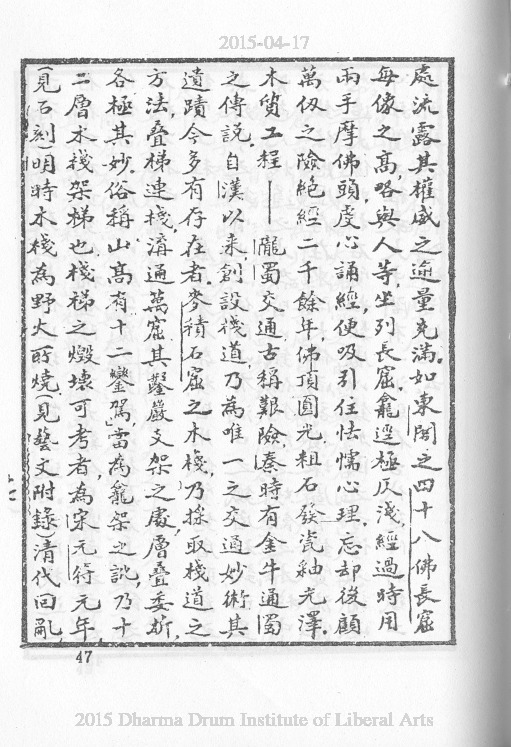 2015-04-17
處流露其權威之逾量充滿。如東閣之四十八佛長窟
每像之高,略與人等,坐列長窟,龕逕極仄淺,經過時用
兩手摩佛頭,虔心誦經,便吸引住怯懦心理,忘却後顧
萬仭之險絕經二千餘年,佛頂圓光,粗石發瓷釉光澤。
木質工程——隴蜀交通,古稱艱險,秦時有金牛通蜀
之傳說,自漢以來,創設棧道,乃為唯一之交通妙術,其
遺蹟今多有存在者。麥積石窟之木棧,乃採取棧道之
方法,叠梯連棧,溝通萬窟,其鑿巖文架之處,層叠委斷,
各極其妙。俗稱「山高有十二鑾駕」,當為龕架之訛,乃十
二層木棧架梯也。棧梯之燬壞可考者,為宋元符元年,
(見石刻)明時木棧為野火所燒。(見藝文附錄)清代回亂,
47
2015 Dharma Drum Institute of Liberal Arts